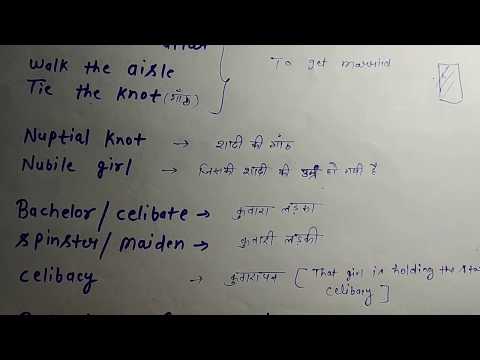 Walk the aisle
Tie the knot (गाँठ) } To get married
Nuptial knot → शादी की गाँठ
Nubile girl → जिसकी शादी की उम्र हो गयी है
Bachelor/celibate → कुवारा लड़का
Spinster/maiden → कुवारी लड़की
celibacy → कुवारापन [That girl is holding the
celibacy]